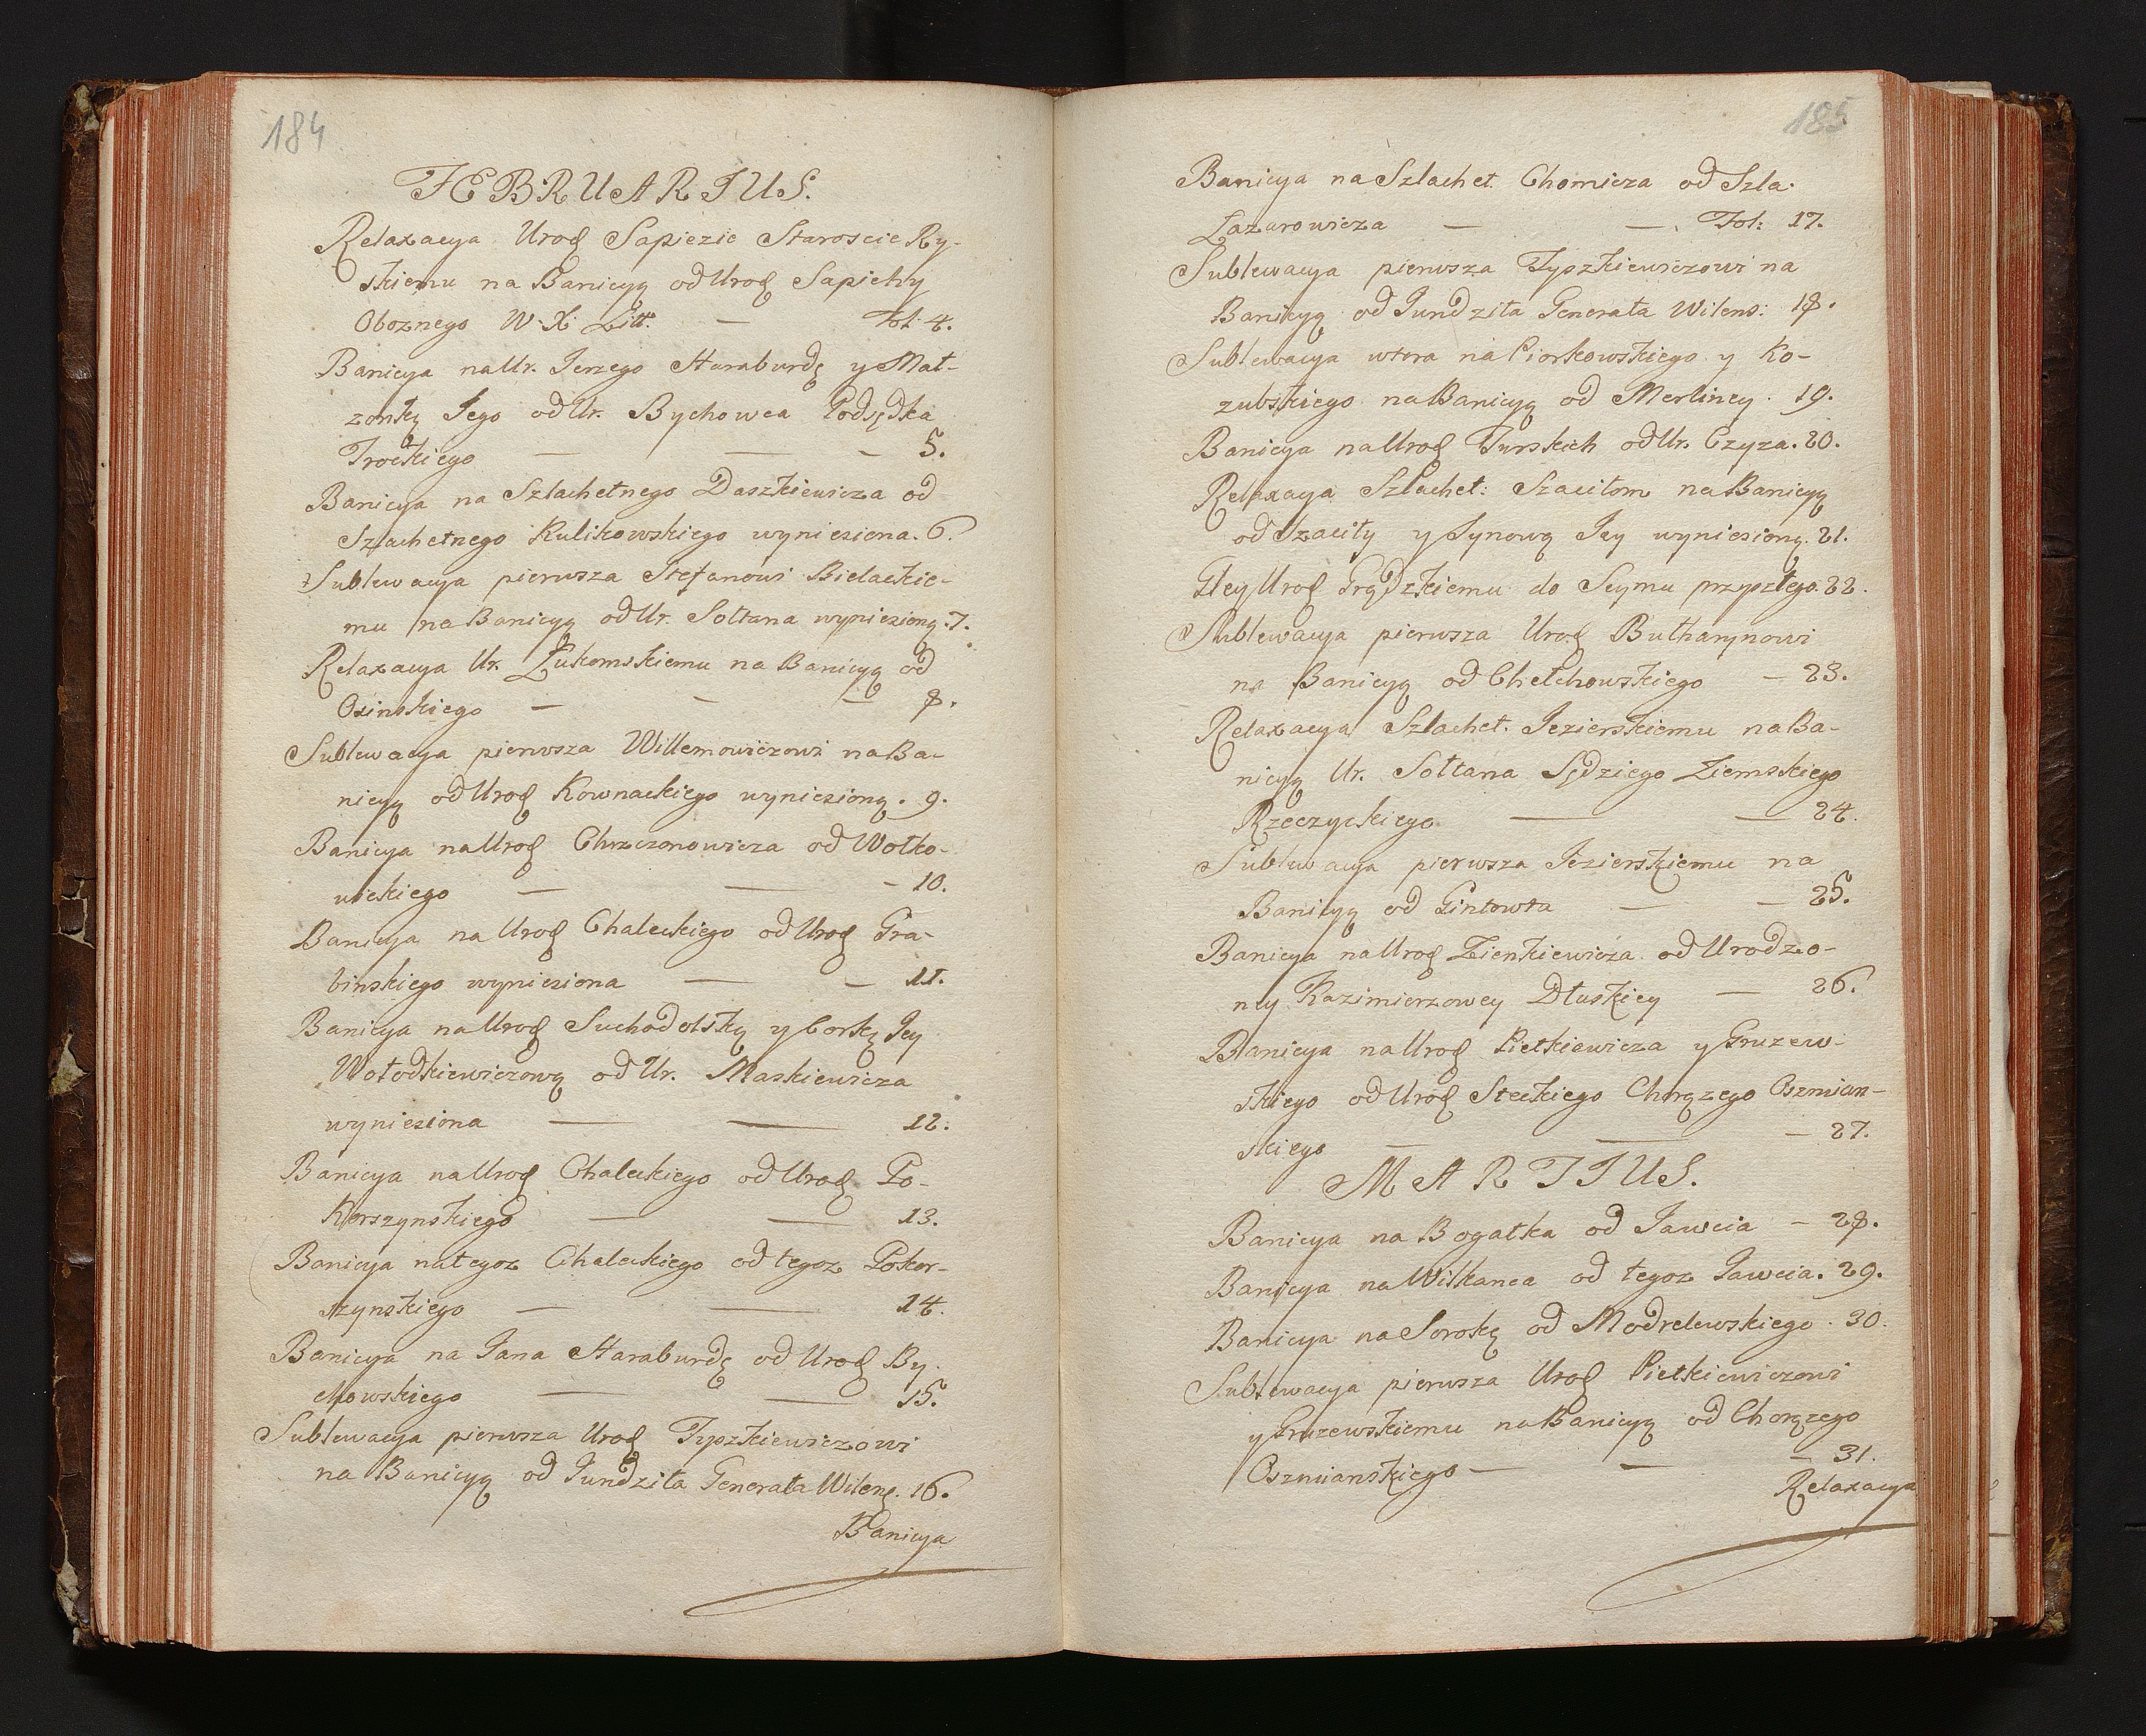 184
FEBRUARIUS.
Relaxacya Urod Sapiezie Staroscie Ry-
skiemu na Banicyą od Urod Sapiehy
Oboznego W. X. Litt. — Fol: 4.
Banicya na Ur. Jerzego Haraburdę y Mał-
zonkę Jego od Ur. Bychowca Podsędka
Trockiego — — — 5.
Banicya na Szlachetnego Daszkiewicza od
Szlachetnego Kulikowskiego wyniesiona. 6.
Sublewacya pierwsza Stefanowi Bielackie-
mu na Banicyą od Ur. Sołtana wyniesioną. 7.
Relaxacya Ur. Łukomskiemu na Banicyą od
Osinskiego — — — 8.
Sublewacya pierwsza Willemowiczowi na Ba-
nicyą od Urod Kownackiego wyniesioną. 9.
Banicya na Urod Chrzczonowicza od Wołko-
wickiego — — — 10.
Banicya na Urod Chaleckiego od Urod Gra-
binskiego wyniesiona — — 11.
Banicya na Urod Suchodolską y Corkę Jey
Wołodkiewiczową od Ur. Maskiewicza
wyniesiona — — 12.
Banicya na Urod Chaleckiego od Urod Po-
korszynskiego — — 13.
Banicya na tegoz Chaleckiego od tegoz Pokor-
szynskiego — — 14.
Banicya na Jana Haraburdę od Urod By-
chowskiego — — 15.
Sublewacya pierwsza Urod Tyszkiewiczowi
na Banicyą od Jundziła Generała Wileng. 16.
Banicya
185
Banicya na Szlachet. Chomicza od Szla.
Łazarowicza — — Fol: 17.
Sublewacya pierwsza Tyszkiewiczowi na
Banicyą od Jundziła Generała Wilens: 18.
Sublewacya wtora na Piorkowskiego y Ko-
zubskiego na Banicyą od Merliney. 19.
Banicya na Urod Turskich od Ur. Czyza. 20.
Relaxacya Szlachet: Szaciłom na Banicyą
od Szaciły y Synową Jey wyniesioną. 21.
Gley Urod Grądzkiemu do Seymu przyszłego. 22.
Sublewacya pierwsza Urod Butharynowi
na Banicyą od Chełchowskiego — 23.
Relaxacya Szlachet. Jezierskiemu na Ba-
nicyą Ur. Sołtana Sędziego Ziemskiego
Rzeczyckiego — — 24.
Sublewacya pierwsza Jezierskiemu na
Banicyą od Gintowta — — 25.
Banicya na Urod Zienkiewicza od Urodzo-
ney Kazimierzowey Dłuskiey — 26.
Banicya na Urod Pietkiewicza y Gruzew-
skiego od Urod Steckiego Chorązego Oszmian-
skiego — — — 27.
MARTIUS.
Banicya na Bogatka od Jawcia — 28.
Banicya na Wilkanca od tegoz Jawcia. 29.
Banicya na Sorokę od Modrelewskiego. 30.
Sublewacya pierwsza Urod Pietkiewiczowi
y Gruzewskiemu na Banicyą od Chorązego
Oszmianskiego — — — 31.
Relaxacya